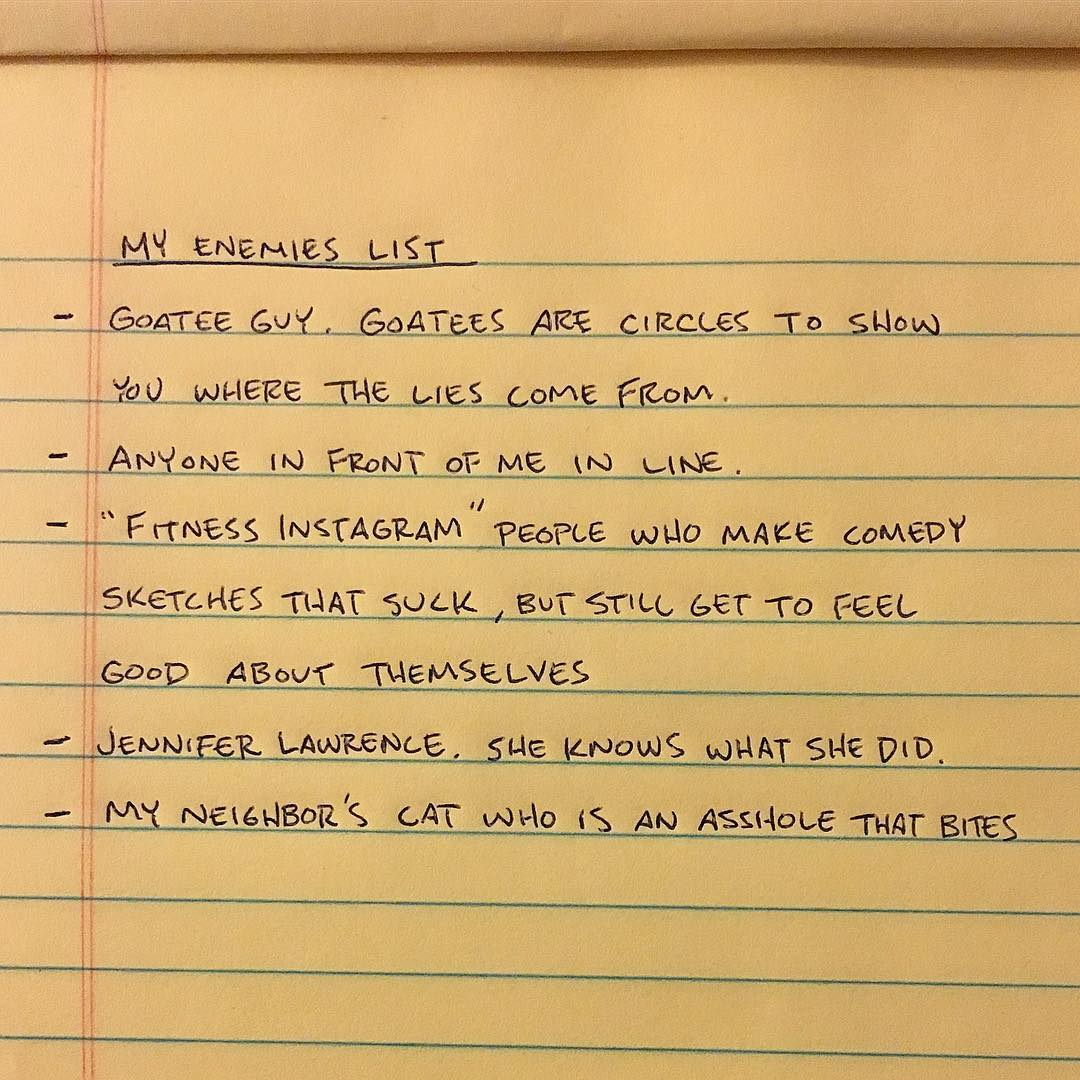 MY ENEMIES LIST
- GOATEE GUY. GOATEES ARE CIRCLES TO SHOW
YOU WHERE THE LIES COME FROM.
- ANYONE IN FRONT OF ME IN LINE.
- "FITNESS INSTAGRAM" PEOPLE WHO MAKE COMEDY
SKETCHES THAT SUCK, BUT STILL GET TO FEEL
GOOD ABOUT THEMSELVES
- JENNIFER LAWRENCE. SHE KNOWS WHAT SHE DID.
- MY NEIGHBOR'S CAT WHO IS AN ASSHOLE THAT BITES